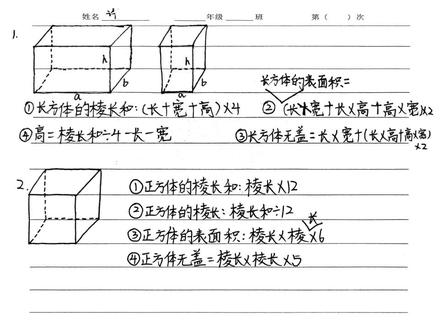 姓名 年级 班 第( )次
1.
h h
b b
a a
长方体的表面积=
①长方体的棱长和:(长+宽+高)×4 ②(长×宽+长×高+高×宽)×2
④高=棱长和÷4-长-宽 ③长方体无盖=长×宽+(长×高+高×宽)×2
2.
①正方体的棱长和:棱长×12
②正方体的棱长:棱长和÷12
长
③正方体的表面积:棱长×棱×6
④正方体无盖=棱长×棱长×5